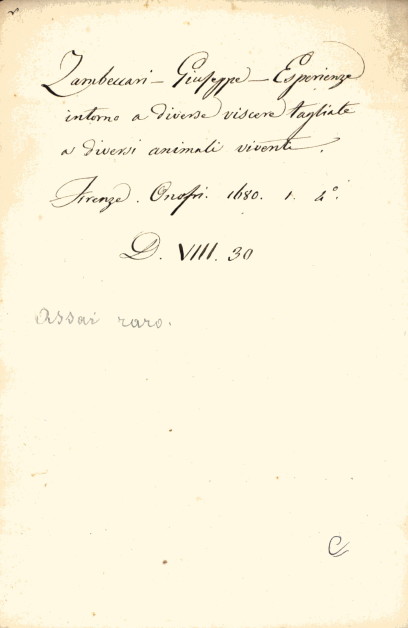 Zambeccari - Giuseppe - Esperienze
intorno a diverse viscere tagliate
a diversi animali viventi.
Firenze. Onofri. 1680. 1. 4°.
D. VIII. 30
Assai raro.
C